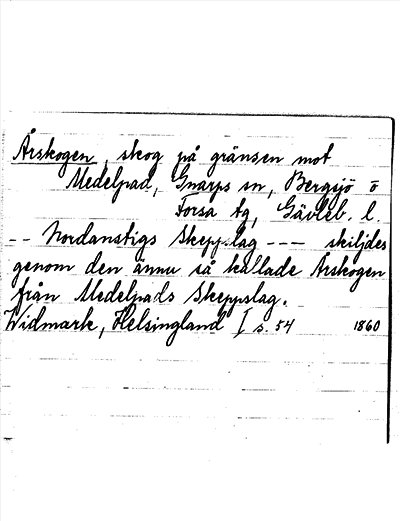 Årskogen, skog på gränsen mot
Medelpad, Gnarps sn, Bergsjö o
Forsa tg, Gävleb. l.
-- Nordanstigs Skeppslag --- skiljdes
genom den ännu så kallade Årskogen
från Medelpads Skeppslag.
Widmark, Helsingland I s. 54 1860